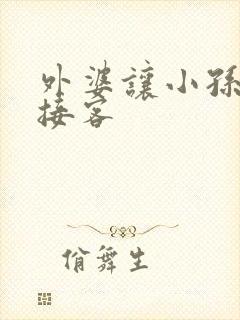 外婆讓小孫
接客
俏舞生